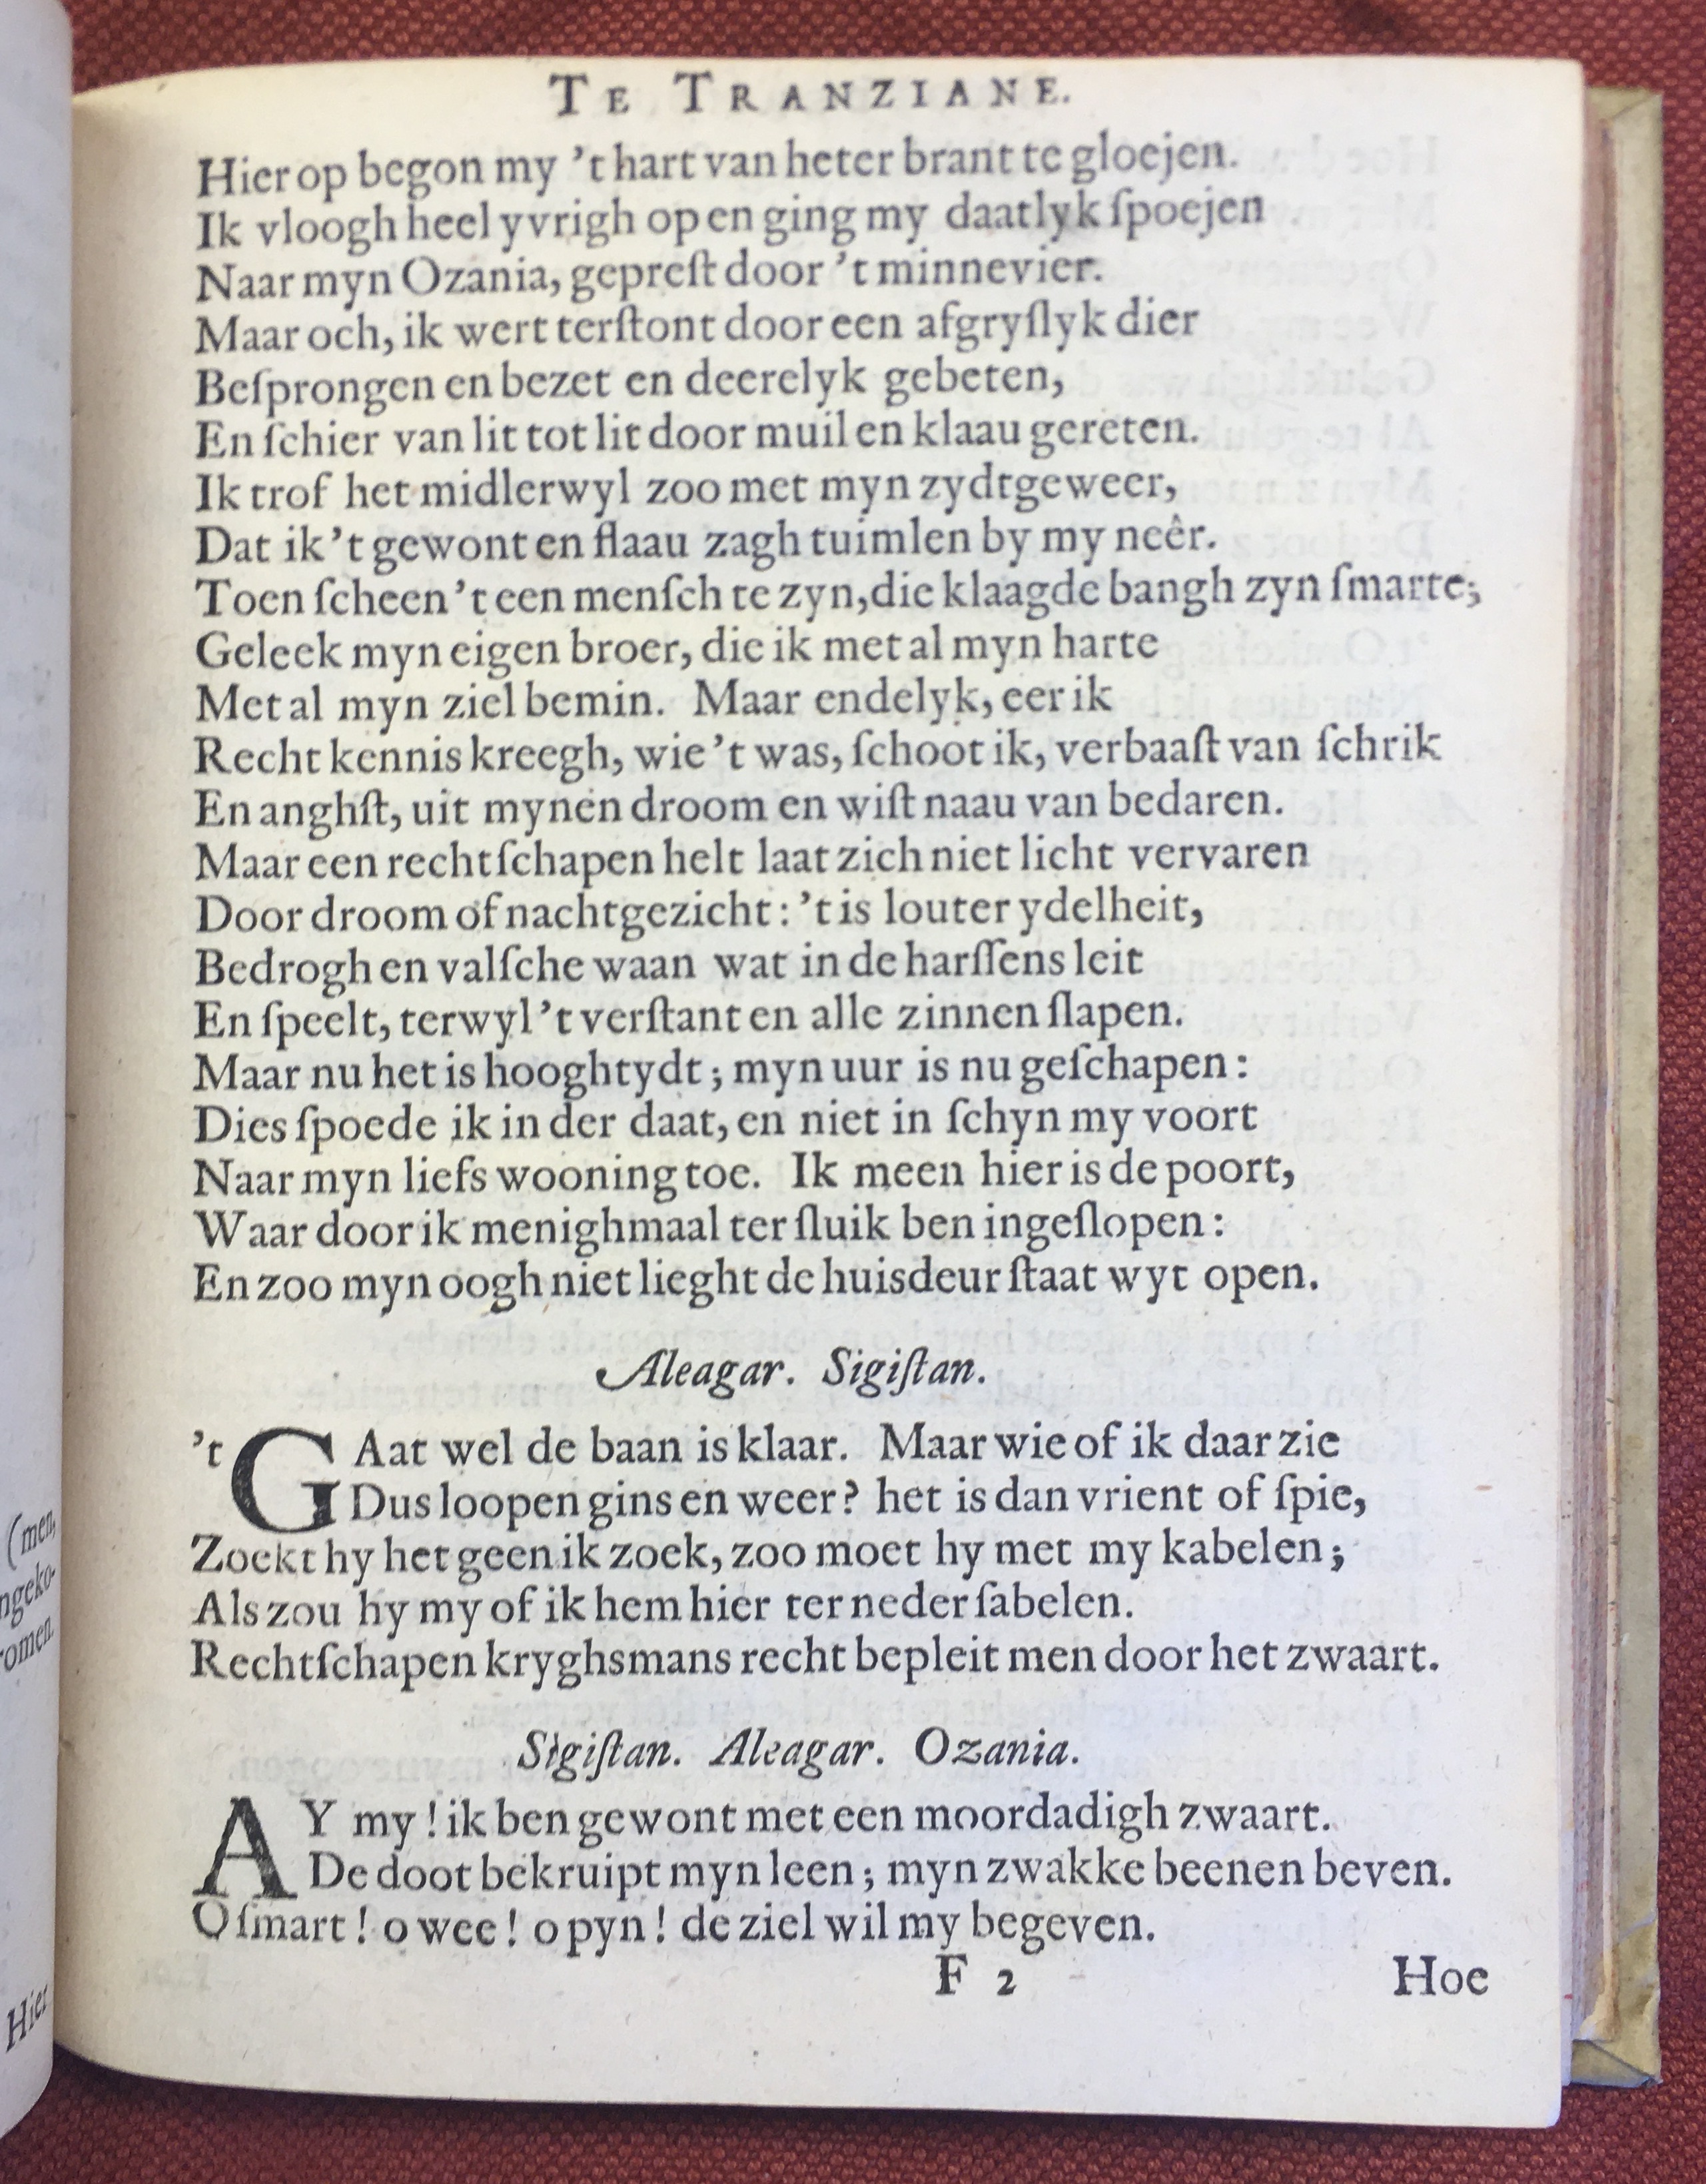 TE TRANZIANE.
Hier op begon my ’t hart van heter brant te gloejen.
Ik vloogh heel yvrigh op en ging my daatlyk ſpoejen
Naar myn Ozania, gepreſt door ’t minnevier.
Maar och, ik wert terſtont door een afgryſlyk dier
Beſprongen en bezet en deerelyk gebeten,
En ſchier van lit tot lit door muil en klaau gereten.
Ik trof het midlerwyl zoo met myn zydtgeweer,
Dat ik ’t gewont en flaau zagh tuimlen by my neêr.
Toen ſcheen ’t een menſch te zyn, die klaagde bangh zyn ſmarte;
Geleek myn eigen broer, die ik met al myn harte
Met al myn ziel bemin. Maar endelyk, eer ik
Recht kennis kreegh, wie ’t was, ſchoot ik, verbaaſt van ſchrik
En anghſt, uit mynen droom en wiſt naau van bedaren.
Maar een rechtſchapen helt laat zich niet licht vervaren
Door droom of nachtgezicht: ’t is louter ydelheit,
Bedrogh en valſche waan wat in de harſſens leit
En ſpeelt, terwyl ’t verſtant en alle zinnen ſlapen.
Maar nu het is hooghtydt; myn uur is nu geſchapen:
Dies ſpoede ik in der daat, en niet in ſchyn my voort
Naar myn liefs wooning toe. Ik meen hier is de poort,
Waar door ik menighmaal ter ſluik ben ingeſlopen:
En zoo myn oogh niet lieght de huisdeur ſtaat wyt open.
Aleagar. Sigiſtan.
’t GAat wel de baan is klaar. Maar wie of ik daar zie
Dus loopen gins en weer? het is dan vrient of ſpie,
Zoekt hy het geen ik zoek, zoo moet hy met my kabelen;
Als zou hy my of ik hem hier ter neder ſabelen.
Rechtſchapen kryghsmans recht bepleit men door het zwaart.
Sigiſtan. Aleagar. Ozania.
AY my! ik ben gewont met een moordadigh zwaart.
De doot bekruipt myn leen; myn zwakke beenen beven.
O ſmart! o wee! o pyn! de ziel wil my begeven.
F 2 Hoe
(men,
ngeko-
romen.
Hier